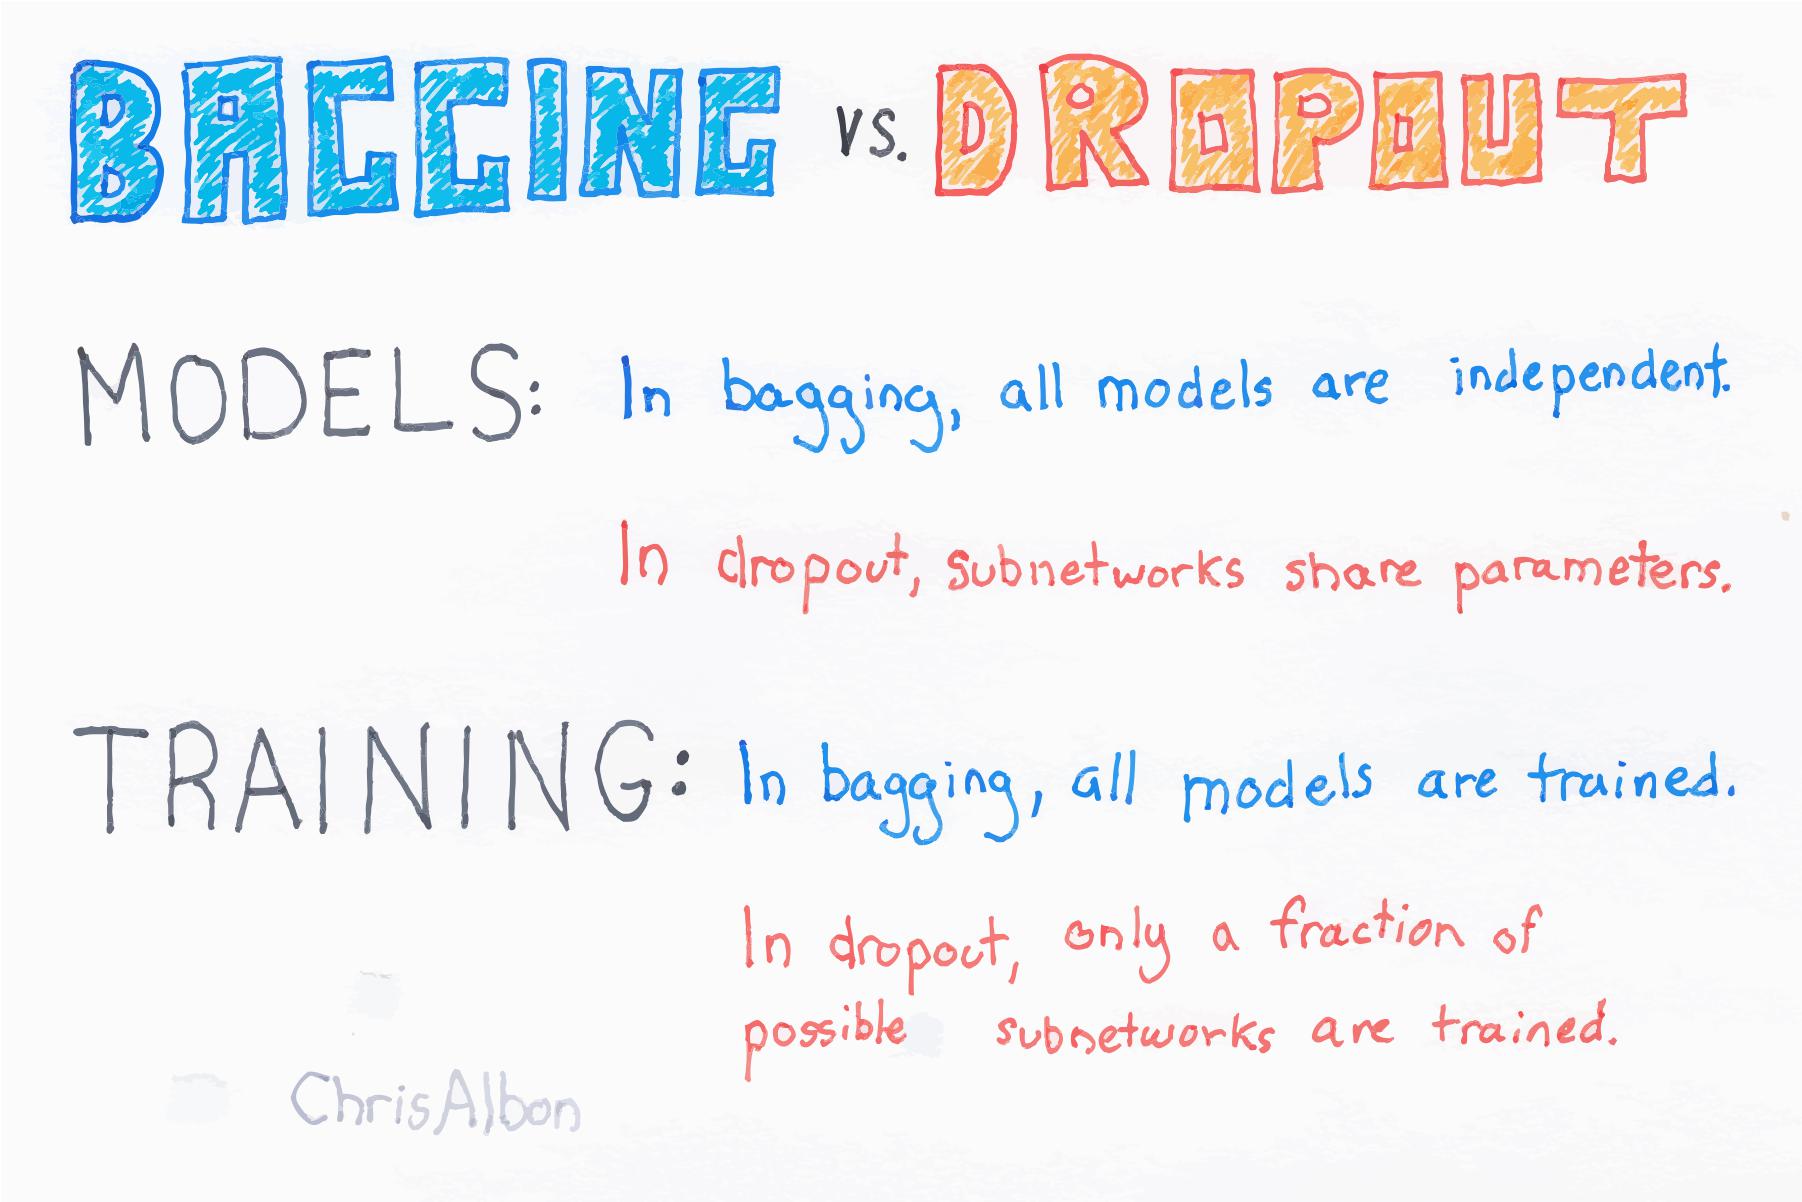 BAGGING vs. DROPOUT
MODELS: In bagging, all models are independent.
In dropout, subnetworks share parameters.
TRAINING: In bagging, all models are trained.
In dropout, only a fraction of
possible subnetworks are trained.
ChrisAlbon